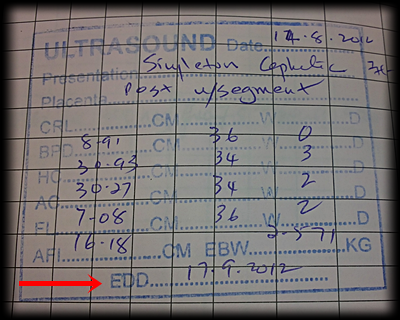 ULTRASOUND Date 14.8.2012
Presentation Singleton Cephalic
Placenta Post u/segment
CRL CM W D
BPD 8.91 CM 36 W 0 D
HC 30.93 CM 34 W 3 D
AC 30.27 CM 34 W 2 D
FL 7.08 CM 36 W 2 D
AFI 16.18 CM EBW 2.571 KG
EDD 17.9.2012